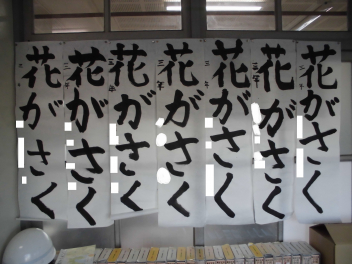 花がさく
花がさく
花がさく
花がさく
花がさく
花がさく
花がさく